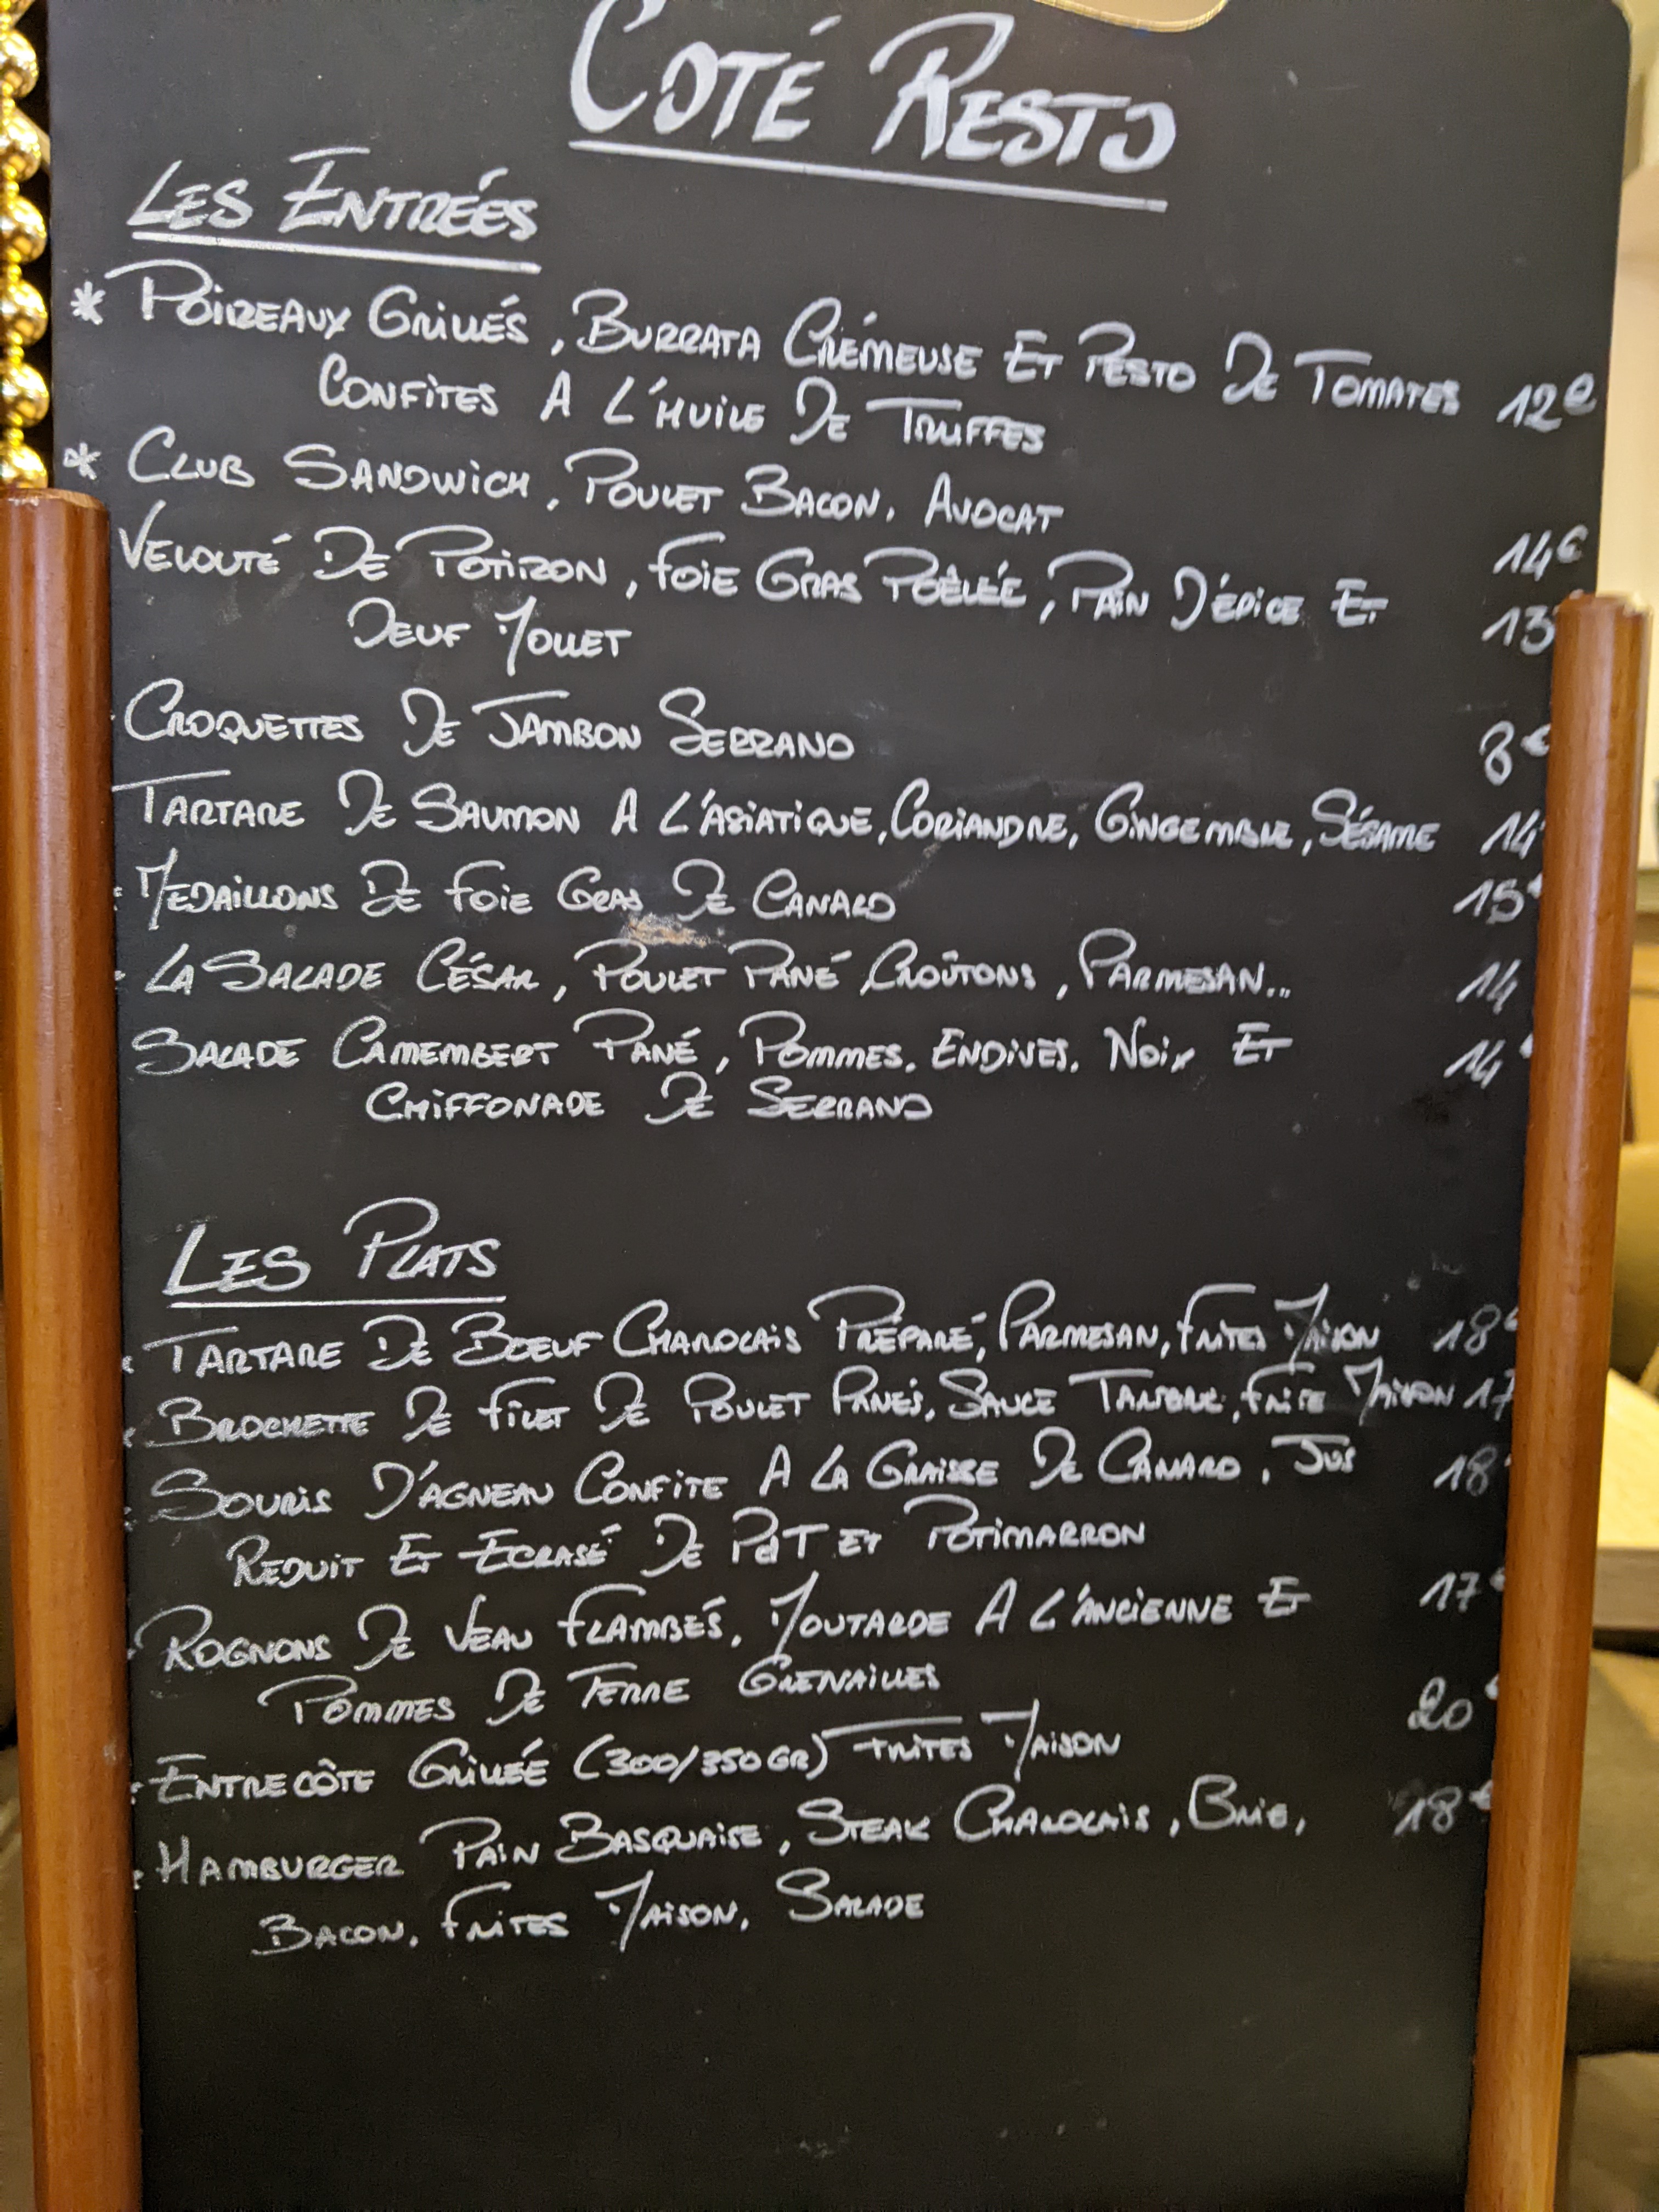 COTÉ RESTO
LES ENTRÉES
* POIREAUX GRILLÉS, BURRATA CRÉMEUSE ET PESTO DE TOMATES 12€
CONFITES A L'HUILE DE TRUFFES
* CLUB SANDWICH, POULET BACON, AVOCAT 14€
VELOUTÉ DE POTIRON, FOIE GRAS POÊLÉE, PAIN D'ÉPICE ET 13€
OEUF MOLLET
CROQUETTES DE JAMBON SERRANO 8€
TARTARE DE SAUMON A L'ASIATIQUE, CORIANDRE, GINGEMBRE, SÉSAME 14
MEDAILLONS DE FOIE GRAS DE CANARD 15€
LA SALADE CÉSAR, POULET PANÉ, CROÛTONS, PARMESAN... 14
SALADE CAMEMBERT PANÉ, POMMES, ENDIVES, NOIX ET 14€
CHIFFONADE DE SERRANO
LES PLATS
TARTARE DE BOEUF CHAROLAIS PRÉPARÉ, PARMESAN, FRITES MAISON 18€
BROCHETTE DE FILET DE POULET PANÉS, SAUCE TARTARE, FRITE MAISON 17
SOURIS D'AGNEAU CONFITE A LA GRAISSE DE CANARD, JUS 18€
REDUIT ET ECRASÉ DE PdT ET POTIMARRON
ROGNONS DE VEAU FLAMBÉS, MOUTARDE A L'ANCIENNE ET 17€
POMMES DE TERRE GRENAILLES
ENTRECÔTE GRILLÉE (300/350GR) FRITES MAISON 20€
HAMBURGER PAIN BASQUAISE, STEAK CHAROLAIS, BRIE, 18€
BACON, FRITES MAISON, SALADE